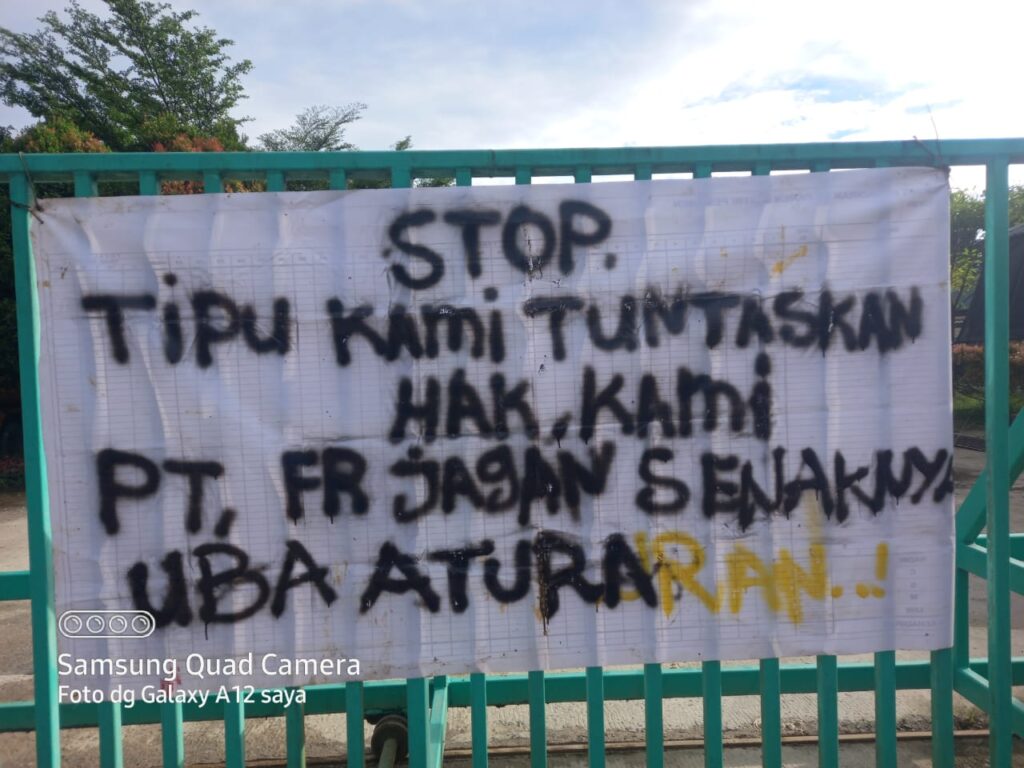 STOP.
TiPU KAmi TUNTASKAN
HAK, KAmi
PT, FR JAGAN SENAKNYA
UBA ATURARAN..!
Samsung Quad Camera
Foto dg Galaxy A12 saya